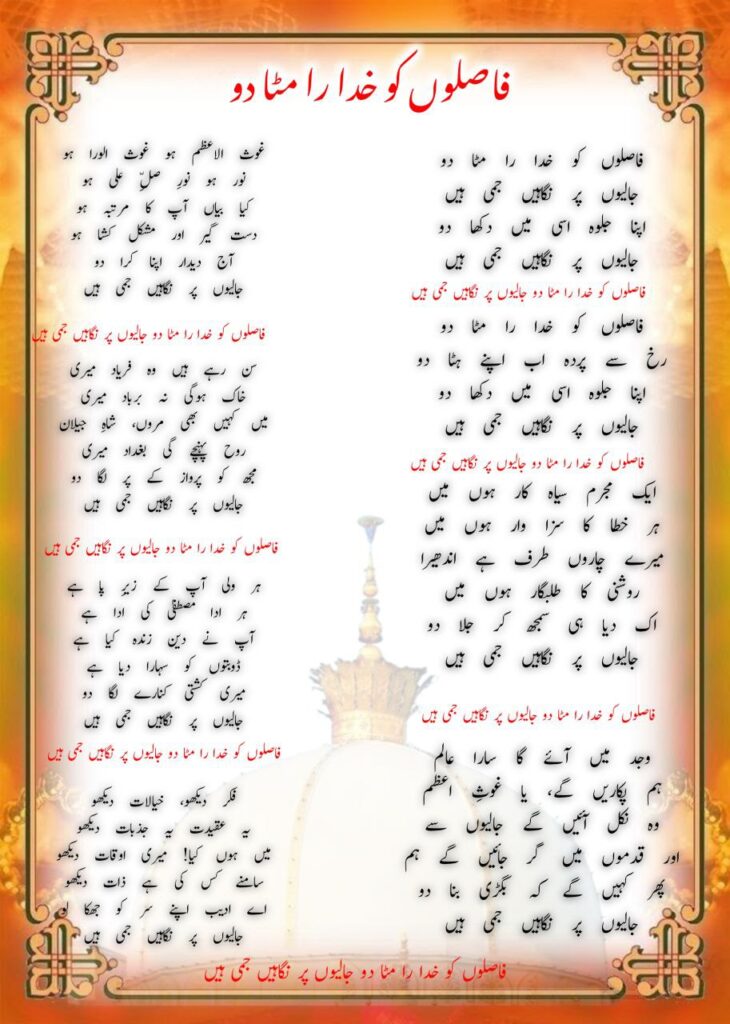 فاصلوں کو خدا را مٹا دو
فاصلوں کو خدا را مٹا دو
جالیوں پر نگاہیں جمی ہیں
اپنا جلوہ اسی میں دکھا دو
جالیوں پر نگاہیں جمی ہیں
فاصلوں کو خدا را مٹا دو جالیوں پر نگاہیں جمی ہیں
فاصلوں کو خدا را مٹا دو
رخ سے پردہ اب اپنے ہٹا دو
اپنا جلوہ اسی میں دکھا دو
جالیوں پر نگاہیں جمی ہیں
فاصلوں کو خدا را مٹا دو جالیوں پر نگاہیں جمی ہیں
ایک مجرم سیاہ کار ہوں میں
ہر خطا کا سزا وار ہوں میں
میرے چاروں طرف ہے اندھیرا
روشنی کا طلبگار ہوں میں
اک دیا ہی سمجھ کر جلا دو
جالیوں پر نگاہیں جمی ہیں
فاصلوں کو خدا را مٹا دو جالیوں پر نگاہیں جمی ہیں
وجد میں آئے گا سارا عالم
ہم پکاریں گے، یا غوثِ اعظم
وہ نکل آئیں گے جالیوں سے
اور قدموں میں گر جائیں گے ہم
پھر کہیں گے کہ بگڑی بنا دو
جالیوں پر نگاہیں جمی ہیں
غوث الاعظم ہو غوث الورا ہو
نور ہو نورِ صلِّ علی ہو
کیا بیاں آپ کا مرتبہ ہو
دست گیر اور مشکل کشا ہو
آج دیدار اپنا کرا دو
جالیوں پر نگاہیں جمی ہیں
فاصلوں کو خدا را مٹا دو جالیوں پر نگاہیں جمی ہیں
سن رہے ہیں وہ فریاد میری
خاک ہوگی نہ برباد میری
میں کہیں بھی مروں، شاہِ جیلان
روح پہنچے گی بغداد میری
مجھ کو پرواز کے پر لگا دو
جالیوں پر نگاہیں جمی ہیں
فاصلوں کو خدا را مٹا دو جالیوں پر نگاہیں جمی ہیں
ہر ولی آپ کے زیرِ پا ہے
ہر ادا مصطفیٰ کی ادا ہے
آپ نے دین زندہ کیا ہے
ڈوبتوں کو سہارا دیا ہے
میری کشتی کنارے لگا دو
جالیوں پر نگاہیں جمی ہیں
فاصلوں کو خدا را مٹا دو جالیوں پر نگاہیں جمی ہیں
فکر دیکھو، خیالات دیکھو
یہ عقیدت یہ جذبات دیکھو
میں ہوں کیا! میری اوقات دیکھو
سامنے کس کی ہے ذات دیکھو
اے ادیب اپنے سر کو جھکا لو
جالیوں پر نگاہیں جمی ہیں
فاصلوں کو خدا را مٹا دو جالیوں پر نگاہیں جمی ہیں